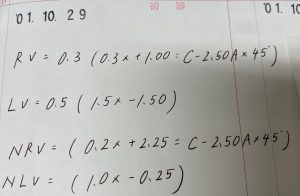 '01. 10. 29
初 診
'01. 10
RV = 0.3 ( 0.3 x + 1.00 = C - 2.50 A x 45°)
LV = 0.5 ( 1.5 x - 1.50 )
NRV = ( 0.2 x + 2.25 = C - 2.50 A x 45°)
NLV = ( 1.0 x - 0.25 )